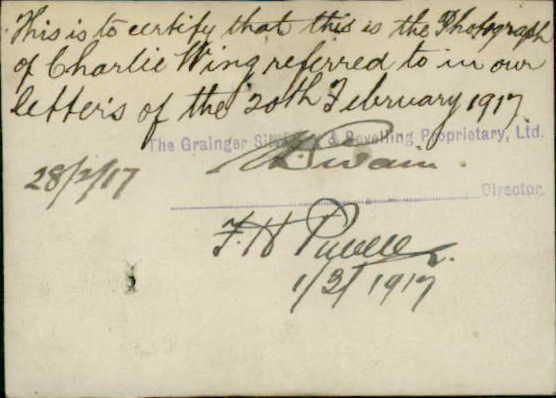 This is to certify that this is the Photograph
of Charlie Wing referred to in our
letters of the 20th February 1917.
The Grainger & Bevelling Proprietary, Ltd.
28/2/17
Director.
F. H.
1/3/1917